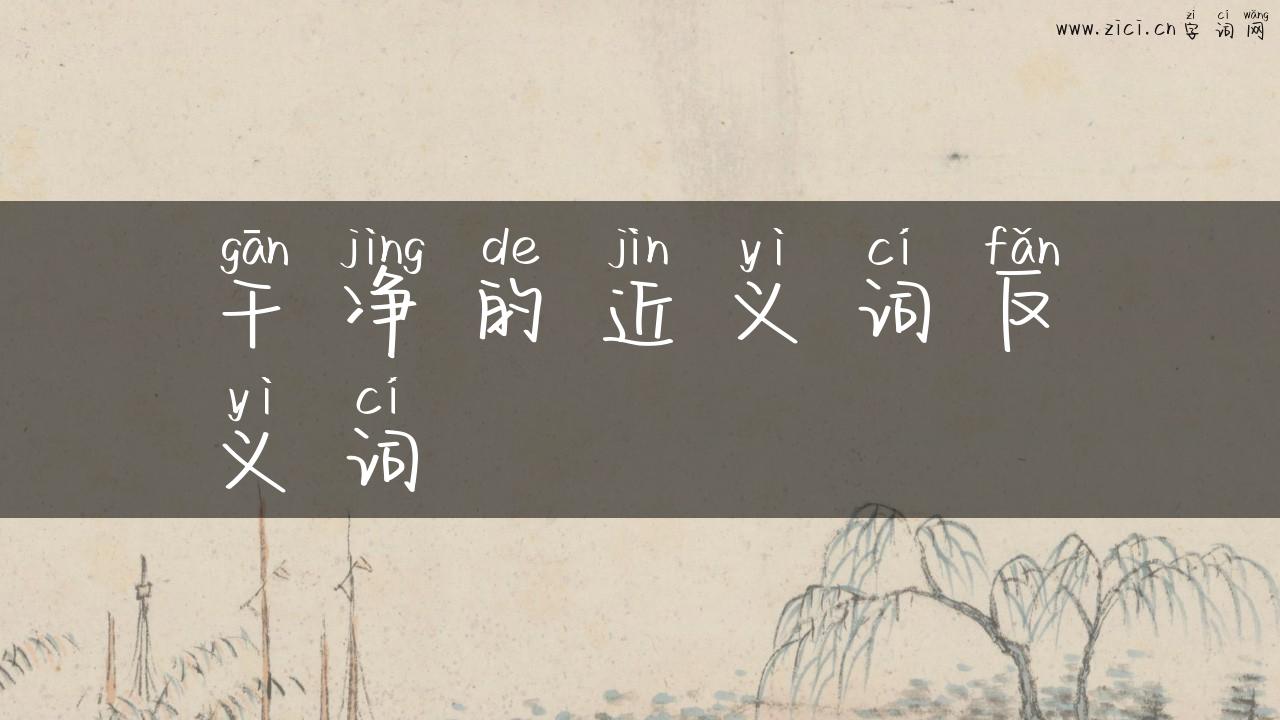 zì cí wǎng
www.zici.cn 字 词 网
gān jìng de jìn yì cí fǎn
干 净 的 近 义 词 反
yì cí
义 词